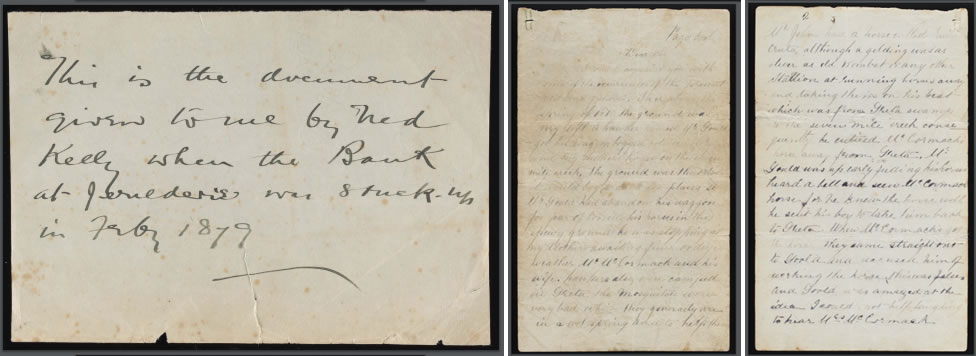 This is the document
given to me by Ned
Kelly when the Bank
at Jerulderie was Stuck-up
in Feby 1879
Page 1st
Dear Sir
some of the occurrences of the present
past and future. In or about the
spring of 1870 the ground was
very soft a hawker named Mr Gould
got his waggon bogged between
my mother's house on the
mile creek, the ground was that
rotten it would bog a duck in places so
Mr Gould had abandon his waggon
for fear of loosing his horses in the
spewy ground he was stopping at
my Mothers awaiting finer or dryer
weather Mr McCormack and his
wife hawkers also were camped
in Greta the Mosquitoes were
very bad which they generally are
in a wet spring and to help them
2
Mr John had a horse called
Cruta although a gelding was as
clever as old Wombat or any other
Stallion at running horses away
and taking them on his beat
which was from Greta swamp
to the seven mile creek conse
quently he enticed McCormacks
horse away from Greta. Mr
Gould was up early feeding his horses
heard a bell and seen McCormacks
horse for he knew the horse well
he sent his boy to take him back
to Greta. When McCormacks got
the horse they came straight out
to Goold and accused him of
working the horse, this was false
and Goold was amazed at the
idea I could not help laughing
to hear Mrs McCormack